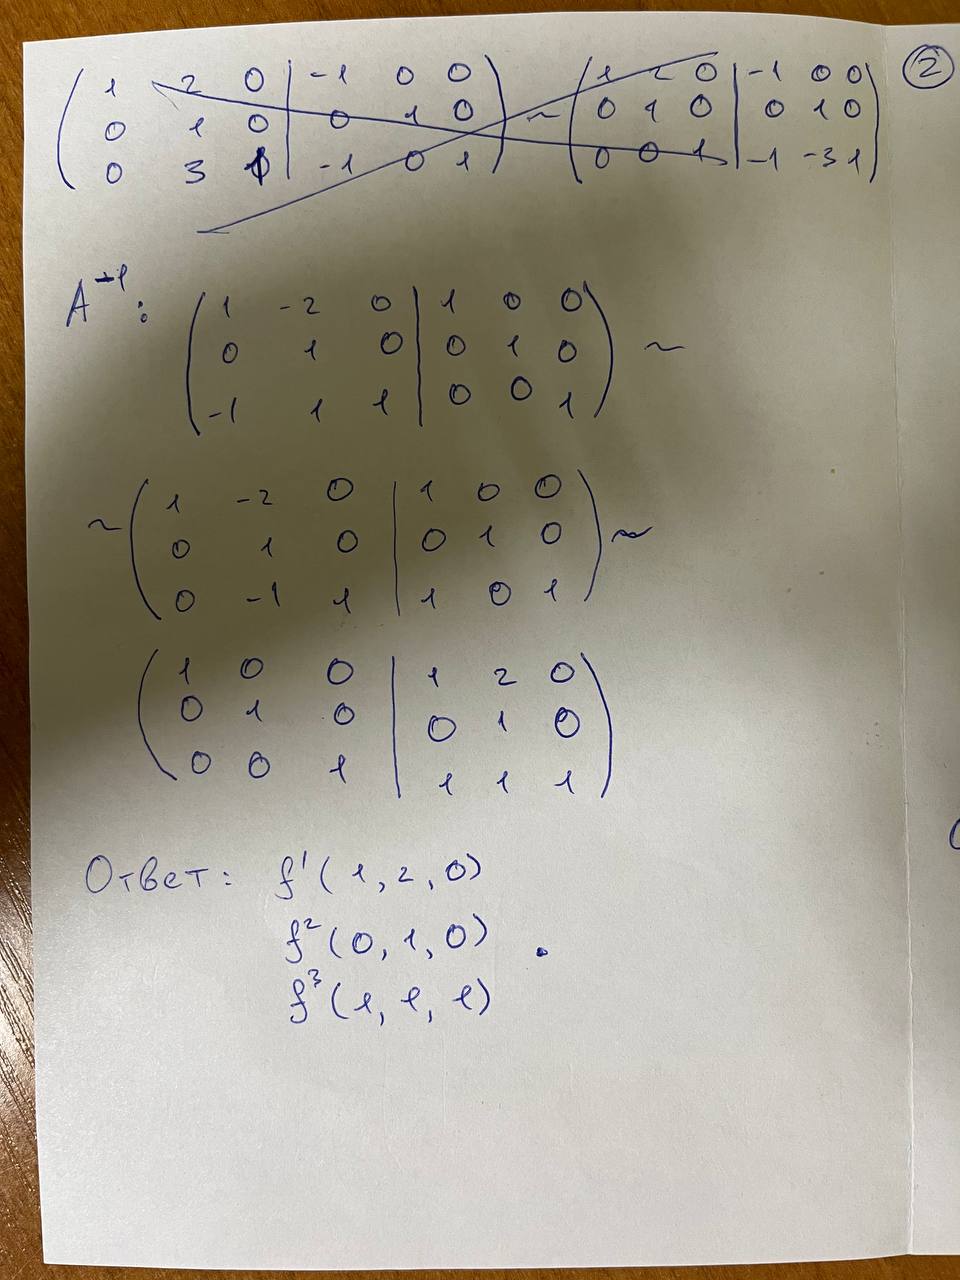 ②
1 2 0 | -1 0 0 ~ 1 2 0 | -1 0 0
0 1 0 | 0 1 0   0 1 0 | 0 1 0
0 3 1 | -1 0 1   0 0 1 | -1 -3 1
A⁻¹:
1 -2 0 | 1 0 0
0 1 0 | 0 1 0 ~
-1 1 1 | 0 0 1
1 -2 0 | 1 0 0
~ 0 1 0 | 0 1 0 ~
0 -1 1 | 1 0 1
1 0 0 | 1 2 0
0 1 0 | 0 1 0
0 0 1 | 1 1 1
Ответ: f¹(1, 2, 0)
f²(0, 1, 0) .
f³(1, 1, 1)